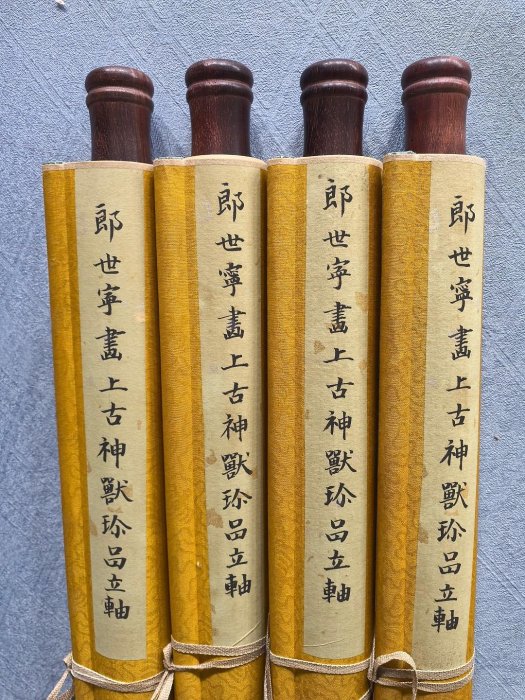 郎世寧畫上古神獸珎品立軸
郎世寧畫上古神獸珎品立軸
郎世寧畫上古神獸珎品立軸
郎世寧畫上古神獸珎品立軸